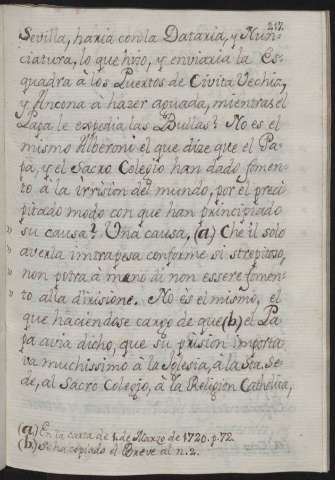 217.
Sevilla, haria con la Dataria, y Nun-
ciatura, lo que hizo, y enviaria la Es-
quadra à los Puertos de Civita Vechia,
y Ancona à hazer aguada, mientras el
Papa le expedia las Bullas? No es el
mismo Alberoni el que dize que el Pa-
pa, y el Sacro Colegio han dado fomen-
to à la irrision del mundo, por el preci
pitado modo con que han principiado
su causa? Una causa, (a) Che il solo
averla intrapresa conforme si strepitoso,
non potrà à meno di non essere fomen-
to alla dirisione. No es el mismo, el
que haciendose cargo de que (b) el Pa
pa avia dicho, que su prision importa
va muchissimo à la Iglesia, à la Sta. Se-
de, al Sacro Colegio, à la Religion Catholica,
(a) En la carta de 1. de Marzo de 1720. p. 72.
(b) Se ha copiado el Breve al n. 2.